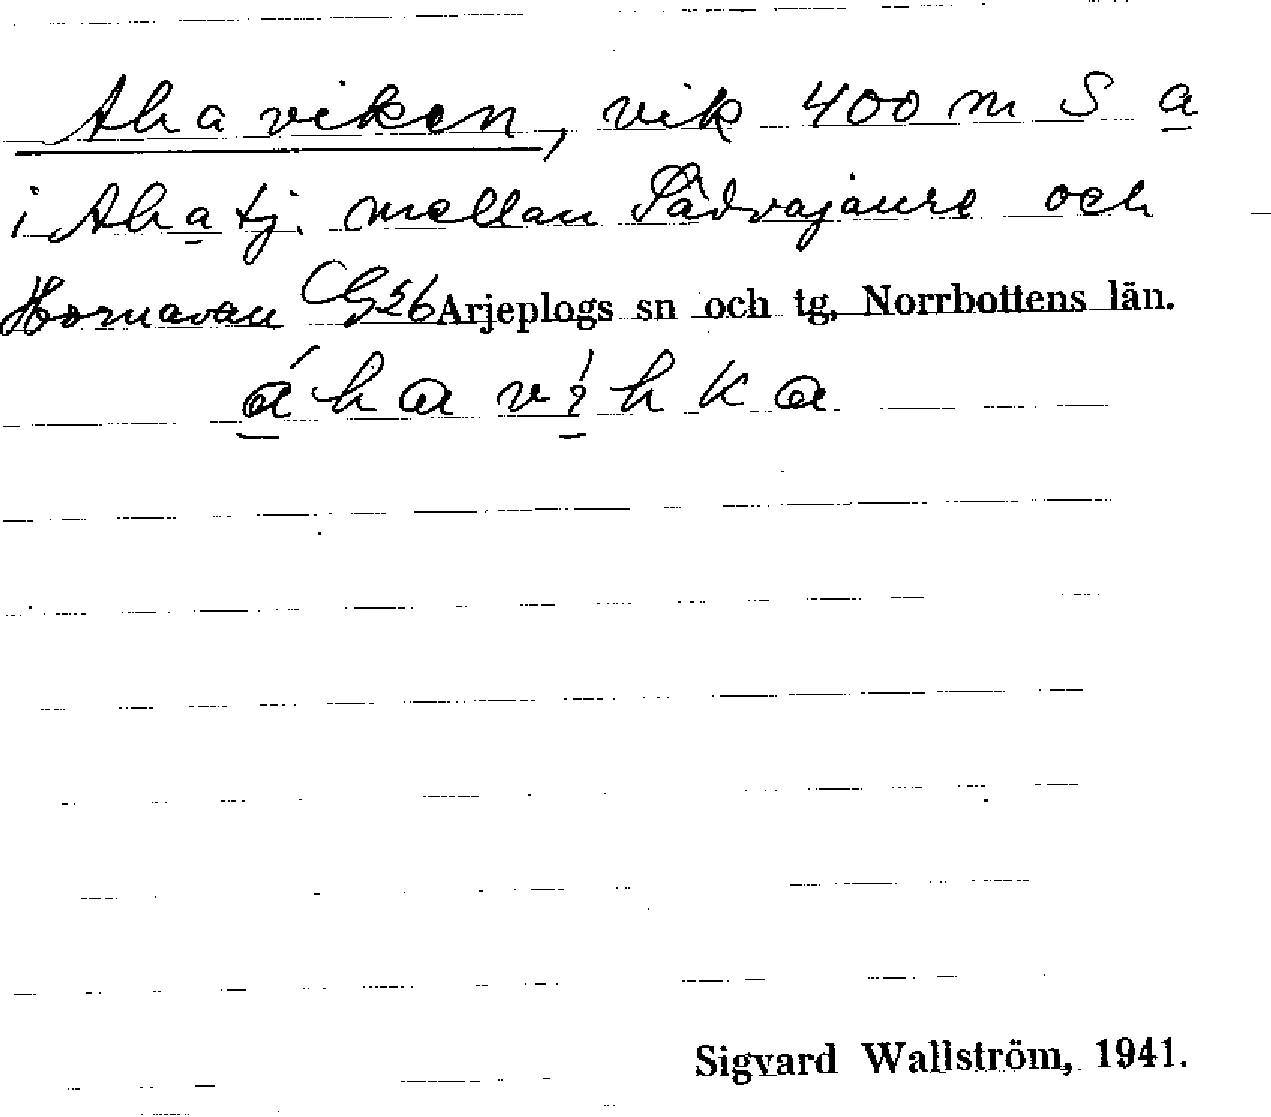 Ahaviken, vik 400 m S a
i Ahatj. mellan Sädvajaure och
Hornavan G56 Arjeplogs sn och tg, Norrbottens län.
áhavíhka
Sigvard Wallström, 1941.